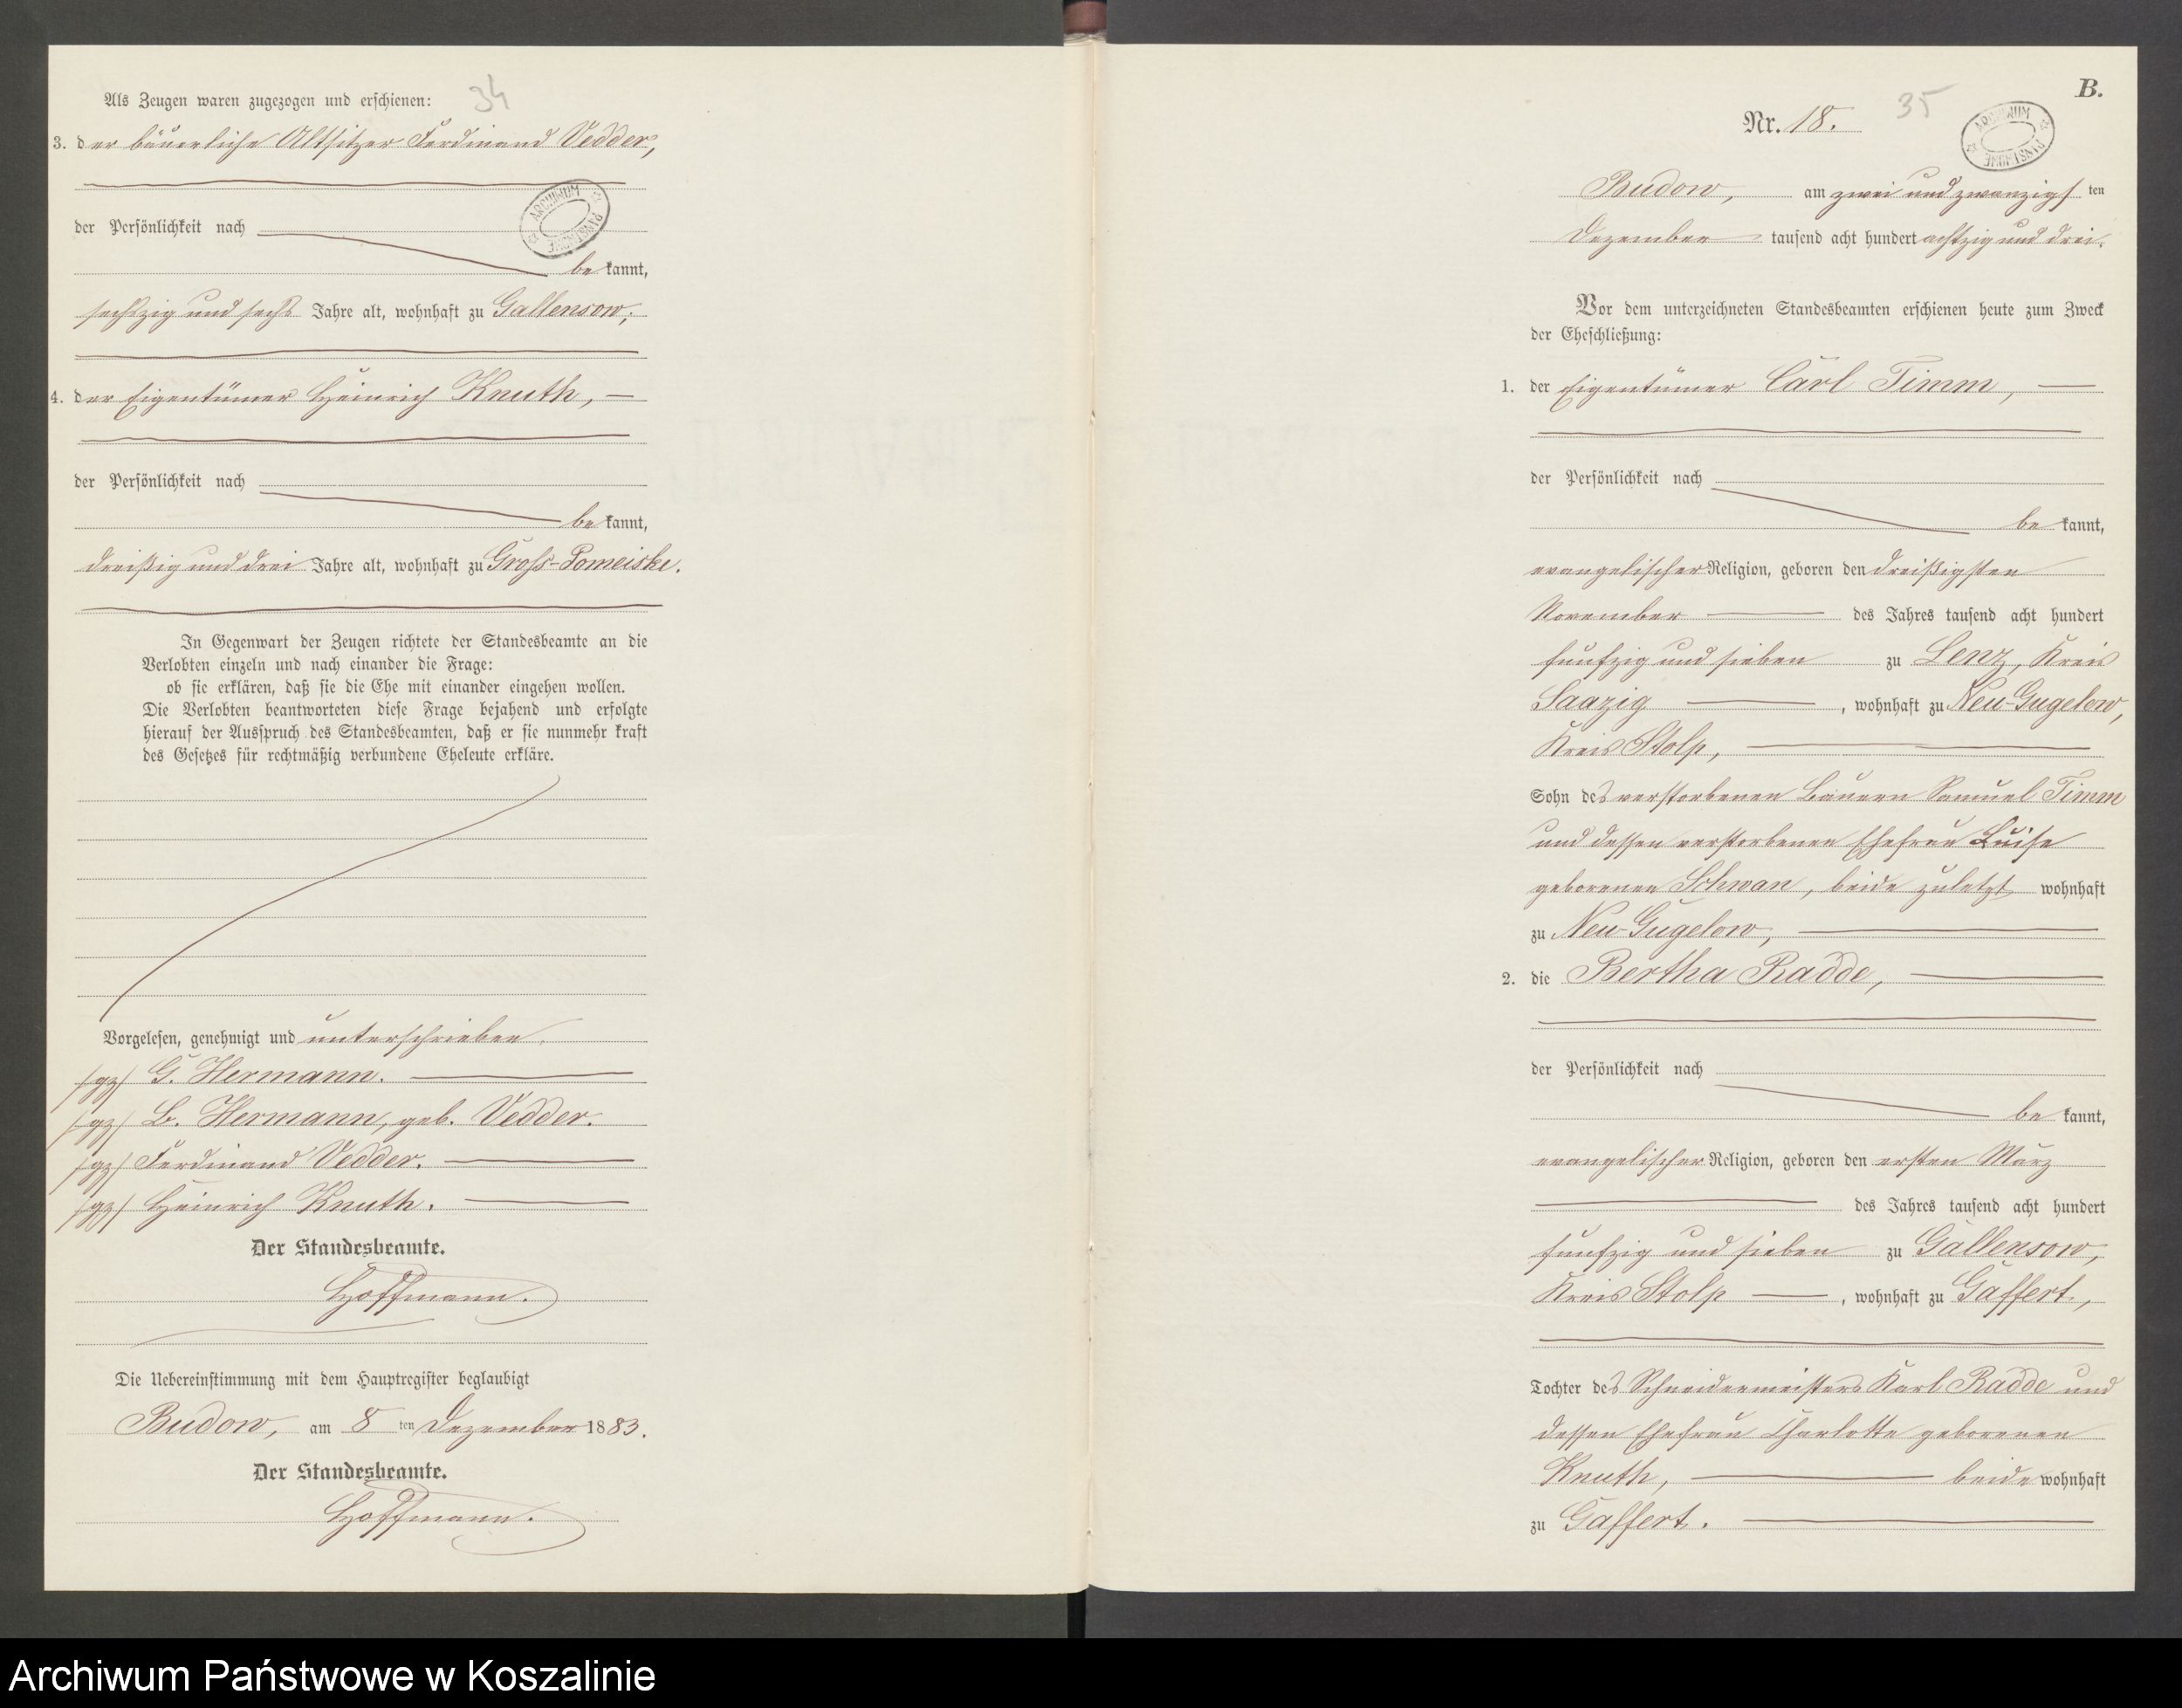 34
Als Zeugen waren zugezogen und erschienen:
3. der bäuerliche Altsitzer Ferdinand Vedder,
ARCHIWUM PAŃSTWOWE
der Persönlichkeit nach
be kannt,
sechszig und sechs Jahre alt, wohnhaft zu Gallensow;
4. der Eigentümer Heinrich Knuth,
der Persönlichkeit nach
be kannt,
dreißig und drei Jahre alt, wohnhaft zu Gross-Pomeiske.
In Gegenwart der Zeugen richtete der Standesbeamte an die
Verlobten einzeln und nach einander die Frage:
ob sie erklären, daß sie die Ehe mit einander eingehen wollen.
Die Verlobten beantworteten diese Frage bejahend und erfolgte
hierauf der Ausspruch des Standesbeamten, daß er sie nunmehr kraft
des Gesetzes für rechtmäßig verbundene Eheleute erkläre.
Vorgelesen, genehmigt und unterschrieben.
/gz/ G. Hermann.
/gz/ B. Hermann, geb. Vedder.
/gz/ Ferdinand Vedder.
/gz/ Heinrich Knuth.
Der Standesbeamte.
Hoffmann.
Die Uebereinstimmung mit dem Hauptregister beglaubigt
Budow, am 8 ten Dezember 1883.
Der Standesbeamte.
Hoffmann.
B.
35
Nr. 18.
ARCHIWUM PAŃSTWOWE
Budow, am zwei und zwanzigs ten
Dezember tausend acht hundert achtzig und drei.
Vor dem unterzeichneten Standesbeamten erschienen heute zum Zweck
der Eheschließung:
1. der Eigentümer Carl Timm,
der Persönlichkeit nach
be kannt,
evangelischer Religion, geboren den dreißigsten
November des Jahres tausend acht hundert
funfzig und sieben zu Lenz, Kreis
Saazig, wohnhaft zu Neu-Gugelow,
Kreis Stolp,
Sohn des verstorbenen Bauern Samuel Timm
und dessen verstorbenen Ehefrau Luise
geborenen Schwan, beide zuletzt wohnhaft
zu Neu-Gugelow,
2. die Bertha Radde,
der Persönlichkeit nach
be kannt,
evangelischer Religion, geboren den ersten März
des Jahres tausend acht hundert
funfzig und sieben zu Gallensow,
Kreis Stolp, wohnhaft zu Gaffert,
Tochter des Schneidermeisters Karl Radde und
dessen Ehefrau Charlotte geborenen
Knuth, beide wohnhaft
zu Gaffert.
Archiwum Państwowe w Koszalinie